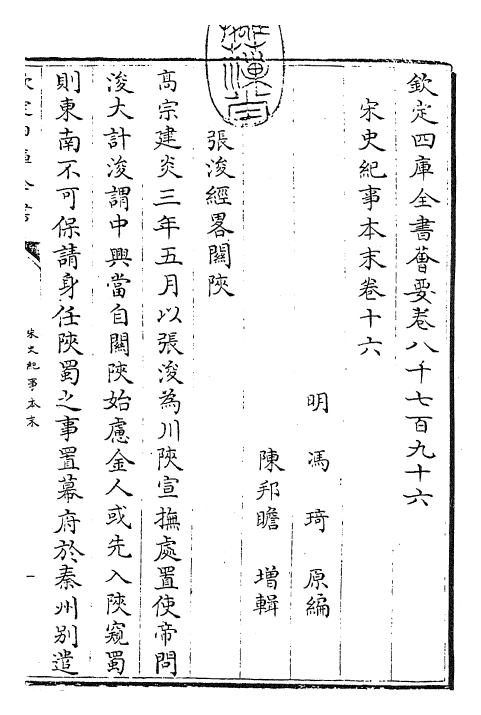 欽定四庫全書薈要卷八千七百九十六
宋史紀事本末卷十六
明 馮琦 原編
陳邦瞻 增輯
張浚經畧關陝
高宗建炎三年五月以張浚為川陝宣撫處置使帝問
浚大計浚謂中興當自關陝始慮金人或先入陝窺蜀
則東南不可保請身任陝蜀之事置幕府於秦州别遣
宋史紀事本末
一